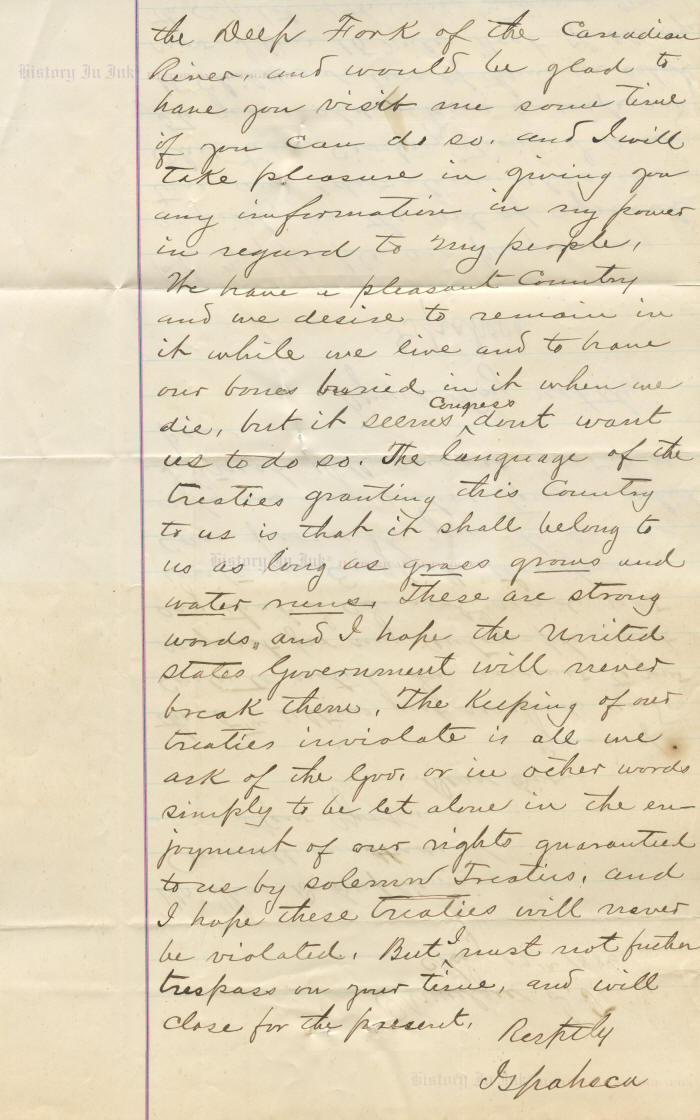 the Deep Fork of the Canadian
River, and would be glad to
have you visit me some time
if you can do so. and I will
take pleasure in giving you
any information in my power
in regard to my people.
We have a pleasant Country
and we desire to remain in
it while we live and to have
our bones buried in it when we
die, but it seems Congress dont want
us to do so. The language of the
treaties granting this Country
to us is that it shall belong to
us as long as grass grows and
water runs. These are strong
words, and I hope the United
states Government will never
break them. The Keeping of our
treaties inviolate is all we
ask of the Gov. or in other words
simply to be let alone in the en-
joyment of our rights guarantied
to us by solemn Treaties, and
I hope these treaties will never
be violated. But I must not further
trespass on your time, and will
close for the present.
Resptly
Isparheca
History In Ink
History In Ink
History In Ink